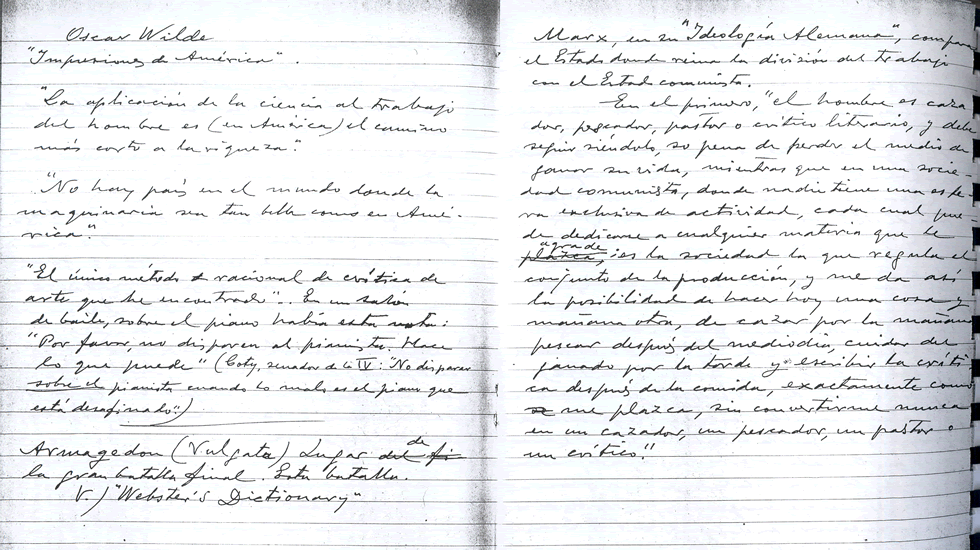 Oscar Wilde
"Impresiones de América".
"La aplicación de la ciencia al trabajo
del hombre es (en América) el camino
más corto a la riqueza."
"No hay país en el mundo donde la
maquinaria sea tan bella como en Amé-
rica."
"El único método racional de crítica de
arte que he encontrado".. En un salón
de baile, sobre el piano había esta nota:
"Por favor, no disparen al pianista. Hace
lo que puede" (Coty, senador de la IV: "No disparar
sobre el pianista cuando lo malo es el piano que
está desafinado".)
Armagedon (Vulgata) Lugar de
la gran batalla final. Esta batalla.
V.) "Webster's Dictionary"
Marx, en su "Ideología Alemana", compara
el Estado donde reina la división del trabajo
con el Estad comunista.
En el primero, "el hombre es caza
dor, pescador, pastor o crítico literario, y debe
seguir siéndolo, so pena de perder el medio de
ganar su vida, mientras que en una socie-
dad comunista, donde nadie tiene una esfe-
ra exclusiva de actividad, cada cual pue-
de dedicarse a cualquier materia que le
agrade
plazca, es la sociedad la que regula el
conjunto de la producción, y me da así
la posibilidad de hacer hoy una cosa y
mañana otra, de cazar por la mañana
pescar después del mediodía, cuidar del
ganado por la tarde y escribir la críti-
ca después de la comida, exactamente como
me plazca, sin convertirme nunca
en un cazador, un pescador, un pastor o
un crítico."